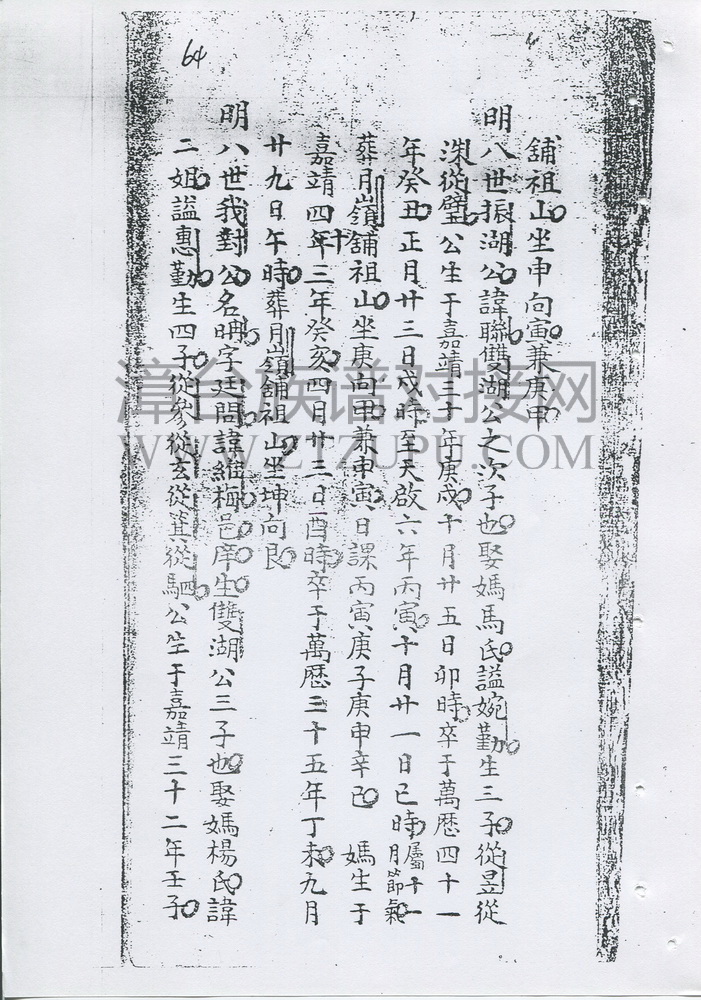 64
舖祖山坐申向寅兼庚甲
明八世振湖公諱聯雙湖公之次子也娶媽馬氏謚婉勤生三子從昱從
洙從璧公生于嘉靖三十年庚戌十月廿五日卯時卒于萬歷四十一
年癸丑正月廿三日戌時至天啟六年丙寅十月廿一日巳時屬十一月節氣
葬月嶺舖祖山坐庚向甲兼申寅日課丙寅庚子庚申辛巳 媽生于
嘉靖四十年三年癸亥四月廿三日酉時卒于萬歷三十五年丁未九月
廿九日午時葬月嶺舖祖山坐坤向艮
明八世我對公名晒字廷問諱維梅邑庠生雙湖公三子也娶媽楊氏諱
二姐謚惠勤生四子從參從玄從箕從駟公生于嘉靖三十二年壬子
漳台族谱对接网
WWW.ZTZUPU.COM